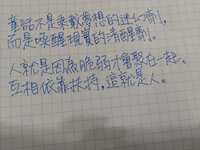 童話不是乘載夢想的迷幻劑,
而是喚醒現實的清醒劑。
人就是因為脆弱才會聚在一起。
互相依靠扶持,這就是人。